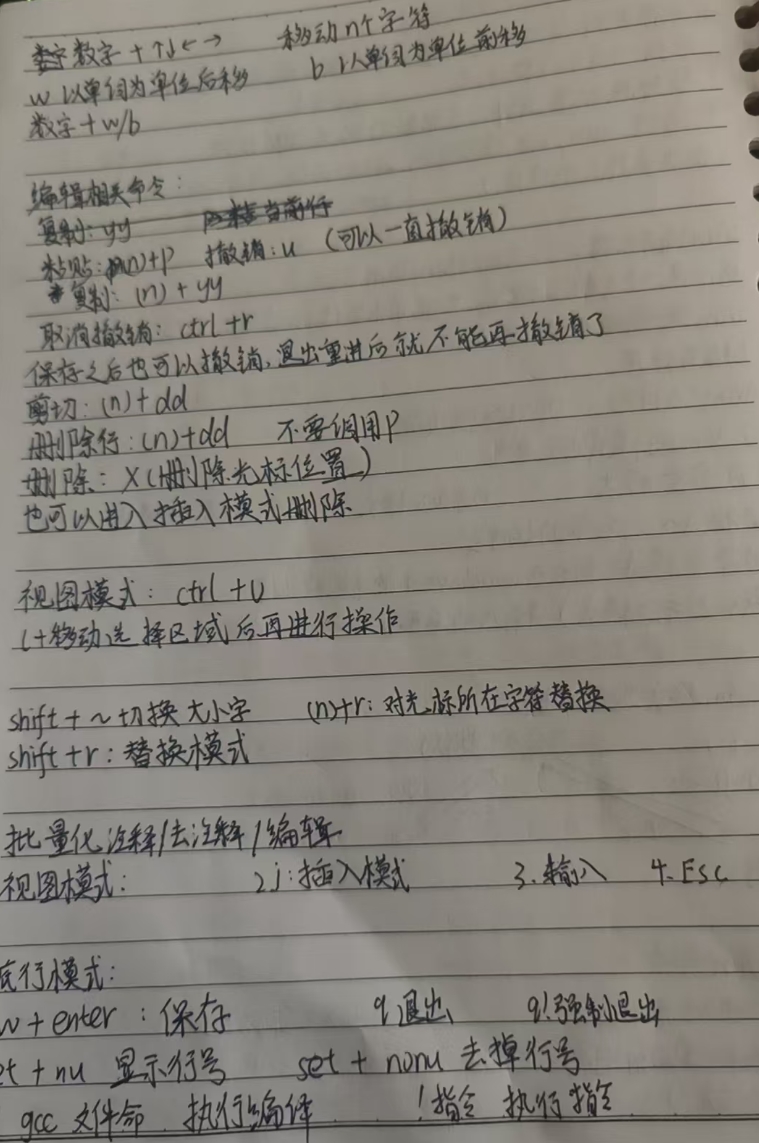 数字 + ↑↓←→ 移动n个字符
w 以单词为单位后移 b 以单词为单位前移
数字 + w/b
编辑相关命令:
复制: yy
粘贴: (n)+p 撤销: u (可以一直撤销)
复制: (n) + yy
取消撤销: ctrl+r
保存之后也可以撤销,退出重进后就不能再撤销了
剪切: (n)+dd
删除行: (n)+dd 不要调用P
删除: X(删除光标位置)
也可以进入插入模式删除
视图模式: ctrl+v
移动选择区域后再进行操作
shift + ~ 切换大小字 (n)+r: 对光标所在字符替换
shift+r: 替换模式
批量化注释/去注释/编辑
视图模式: 2 i: 插入模式 3. 输入 4. Esc
底行模式:
w + enter : 保存 q 退出 q! 强制退出
et + nu 显示行号 set + nonu 去掉行号
gcc 文件命 执行编译 !指令 执行指令